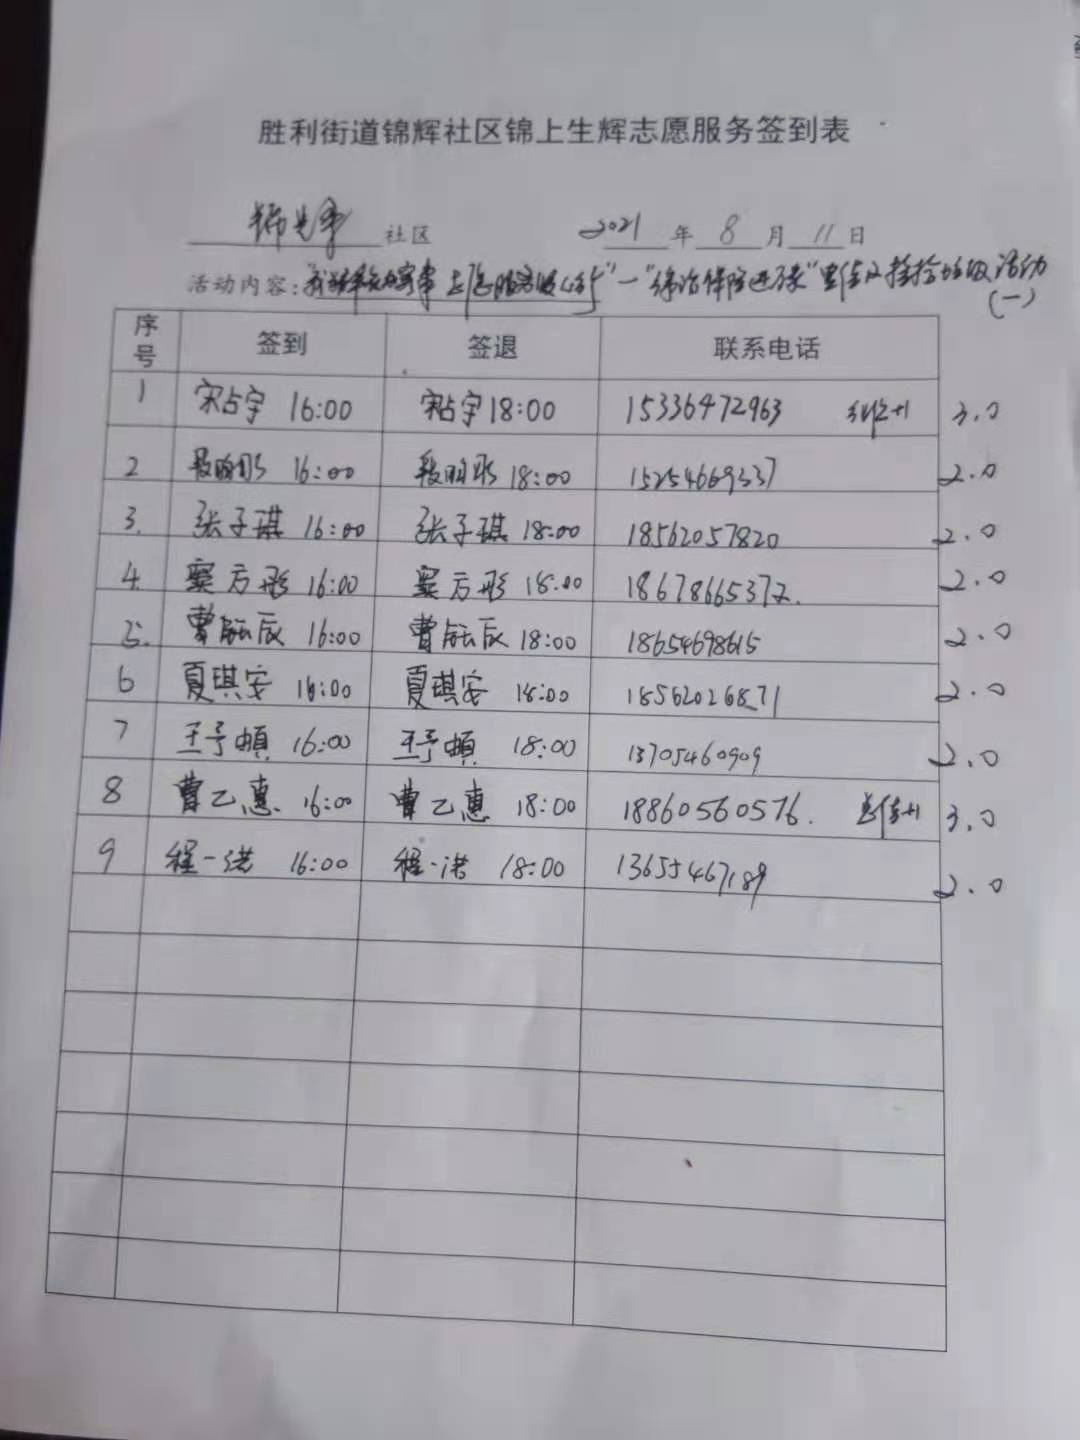 胜利街道锦辉社区锦上生辉志愿服务签到表
社区 2021 年 8 月 11 日
活动内容: 捡拾垃圾活动
(一)
序号 签到 签退 联系电话
1 宋占宇 16:00 宋占宇 18:00 15336472963 3.0
2 16:00 18:00 15254669337 2.0
3. 张子琪 16:00 张子琪 18:00 18562057820 2.0
4 窦方彤 16:00 窦方彤 18:00 18678665372. 2.0
5. 16:00 18:00 18654698615 2.0
6 夏琪安 16:00 夏琪安 18:00 18562026871 2.0
7 16:00 18:00 13705460909 2.0
8 曹乙惠 16:00 曹乙惠 18:00 18860560576. 3.0
9 程一诺 16:00 程一诺 18:00 13655467189 2.0